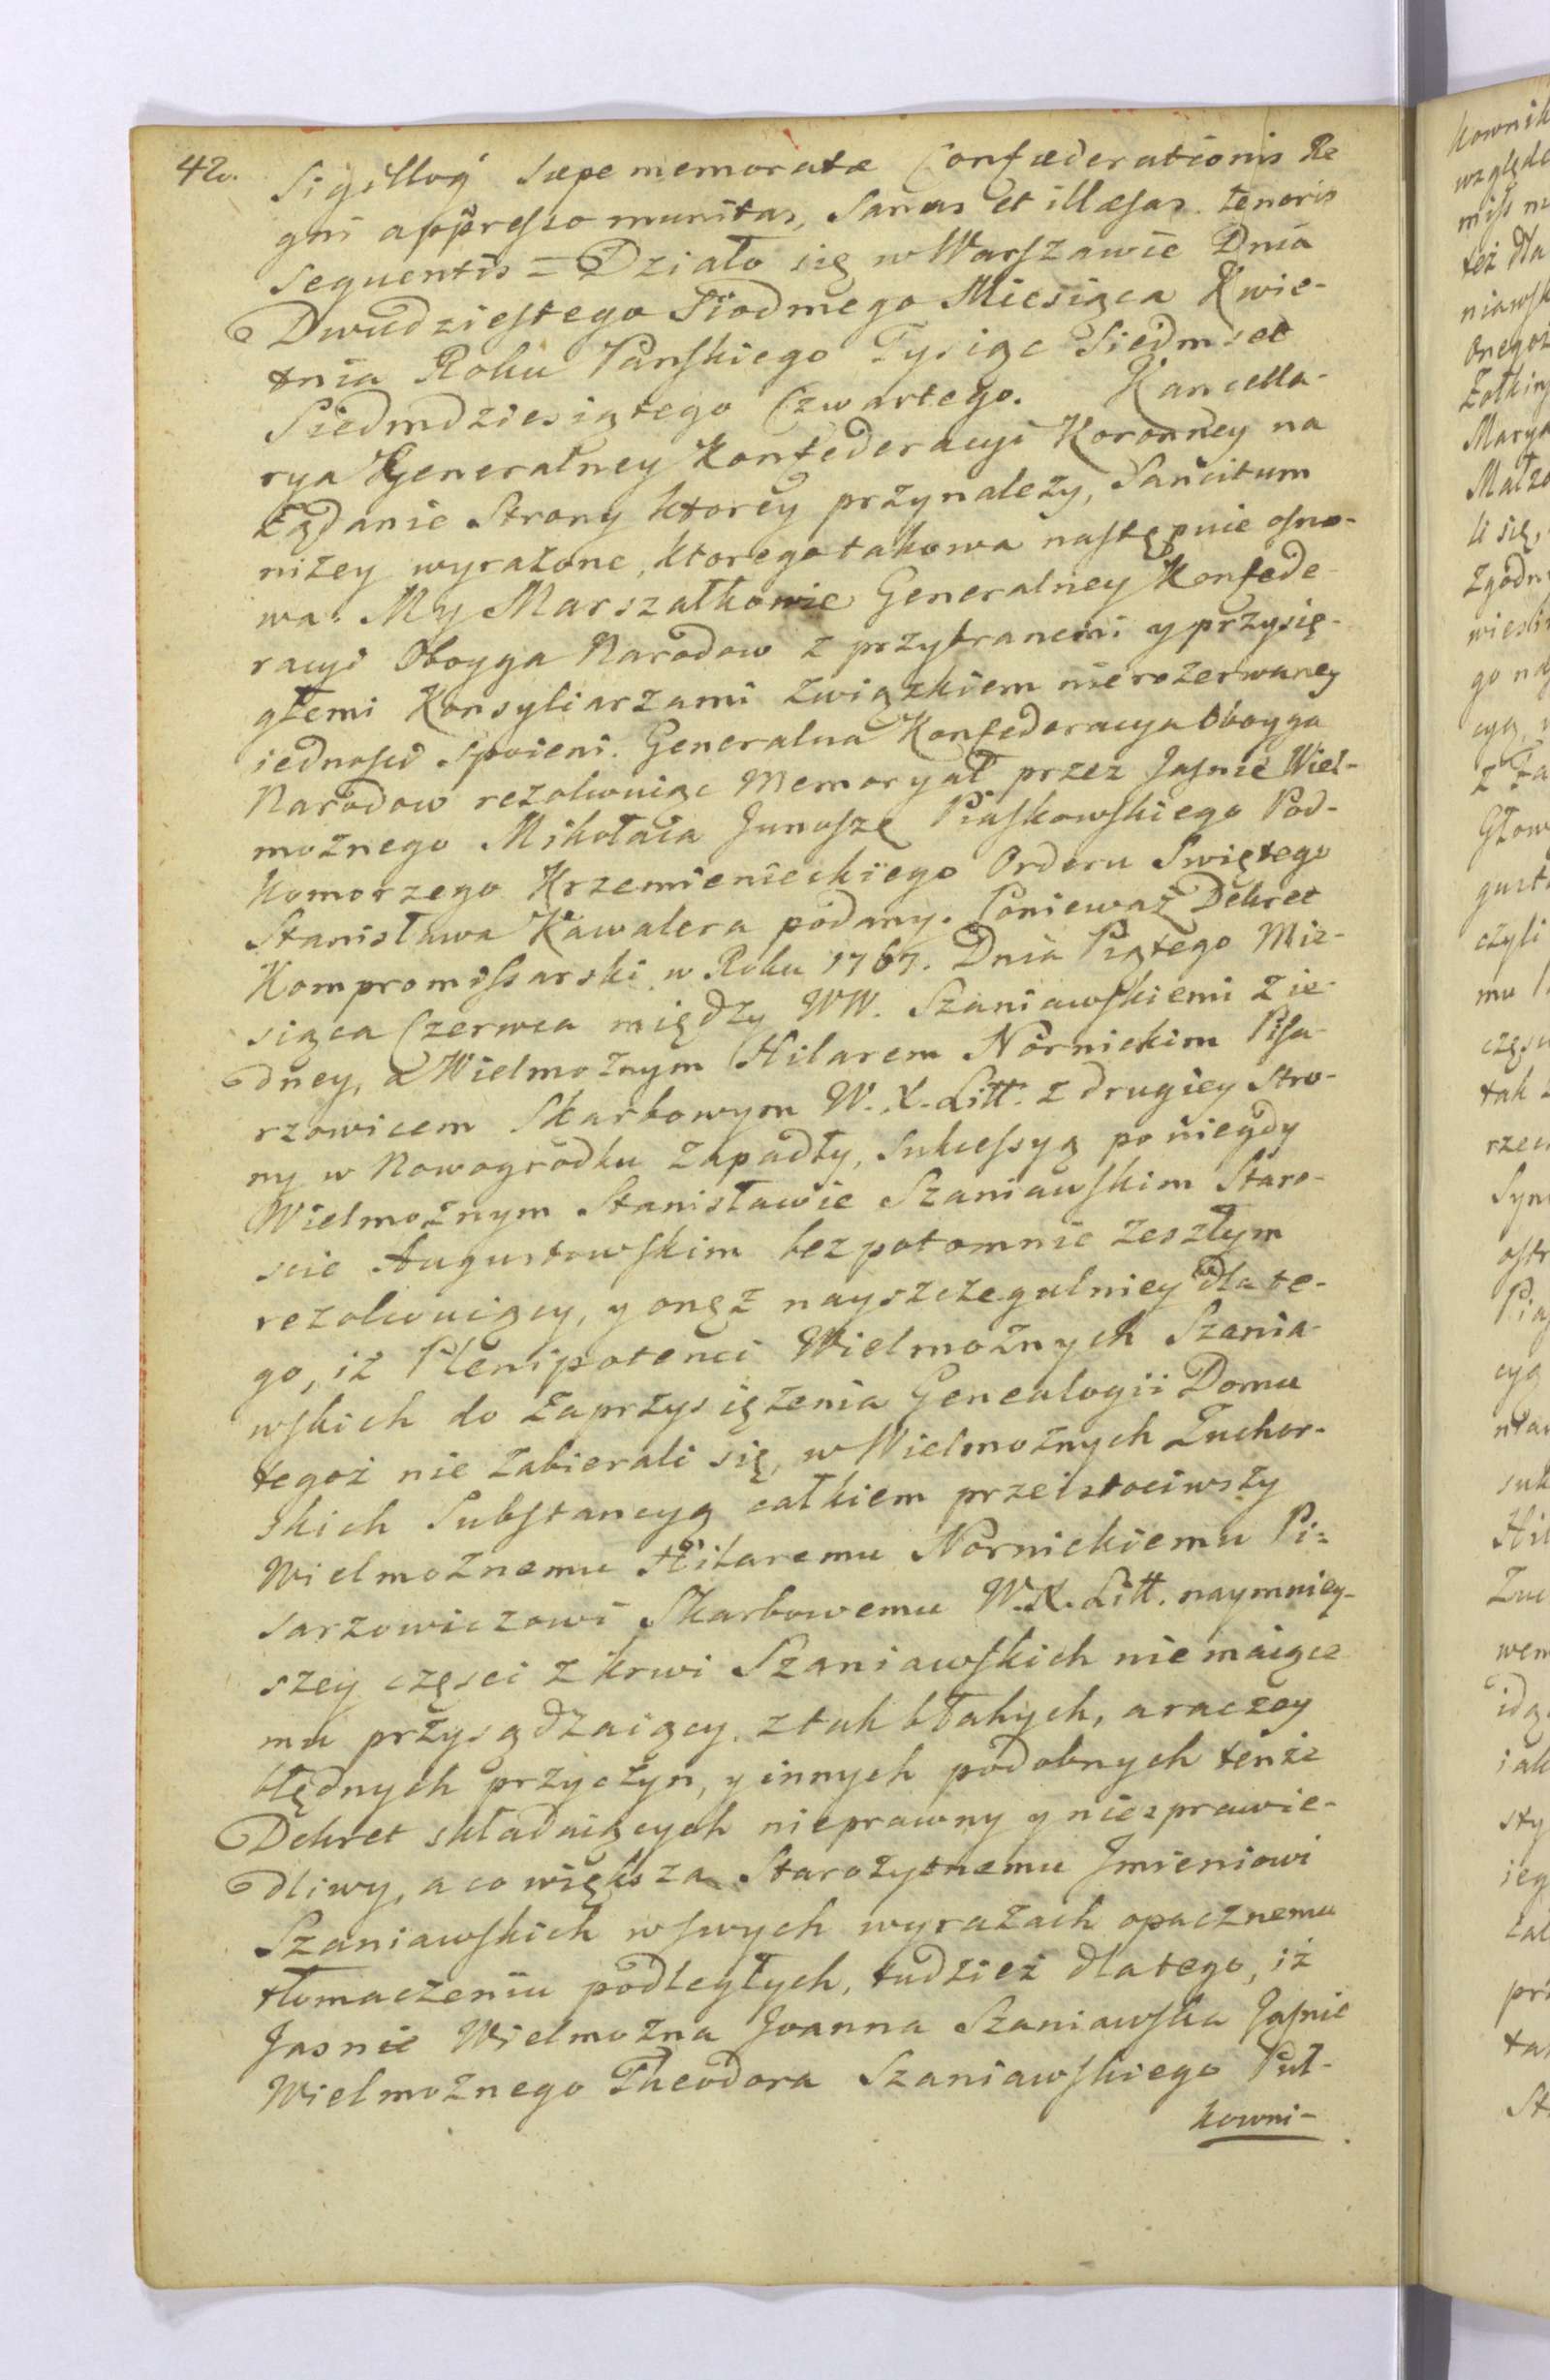 42.
Sigilloq́ sæpe memoratæ Confæderationis Re
gni appresso munitas, Sanas et illæsas tenoris
sequentis = Działo się w Warszawie Dnia
Dwudziestego Siodmego Miesiąca Kwie-
tnia Roku Panskiego Tysiąc Siedmset
Siedmdziesiątego Czwartego. Kancella-
rya Generalney Konfederacyi Koronney na
Żądanie Strony ktorey przynależy, Sancitum
niżey wyrażone, ktorego takowa następuie osno-
wa: My Marszałkowie Generalney Konfede-
racyi Oboyga Narodow z przybranemi y przysię-
głemi Konsyliarzami Związkiem nierozerwaney
iednosci spoieni. Generalna Konfederacya Oboyga
Narodow rezolwuiąc Memoryał przez Jasnie Wiel-
możnego Mikołaia Junoszę Piaskowskiego Pod-
komorzego Krzemienieckiego Orderu Swiętego
Stanisława Kawalera podany. Poniewaz Dekret
Kompromissarski w Roku 1767. Dnia Piątego Mie-
siąca Czerwca między WW. Szaniawskiemi z ie-
dney, a Wielmożnym Hilarem Nornickim Pisa-
rzowicem Skarbowym W. X. Litt. z drugiey stro-
ny w Nowogrodku Zapadły, Sukcessyą po niegdy
Wielmożnym Stanisławie Szaniawskim Staro-
scie Augustowskim bezpotomnie zeszłym
rezolwuiący, y onęż nayszczegulniey dla te-
go, iż Plenipotenci Wielmożnych Szania-
wskich do Zaprzysiężenia Genealogii Domu
tegoż nie Zabierali się, w Wielmożnych Zuchor-
skich Substancyą całkiem przeistociwszy
Wielmożnemu Hilaremu Nornickiemu Pi=
sarzowiczowi Skarbowemu W. X. Litt. naymniey-
szey częsci z krwi Szaniawskich nie maiące
mu przysądzaiący, z tak błahych, a raczey
błędnych przyczyn, y innych podobnych tenże
Dekret składaiących nieprawny y niesprawie-
dliwy, a co większa Starożytnemu Jmieniowi
Szaniawskich w swych wyrazach opacznemu
tłomaczeniu podległych, tudzież dlatego, iż
Jasnie Wielmożna Joanna Szaniawska Jasnie
Wielmożnego Theodora Szaniawskiego Puł-
kowni-